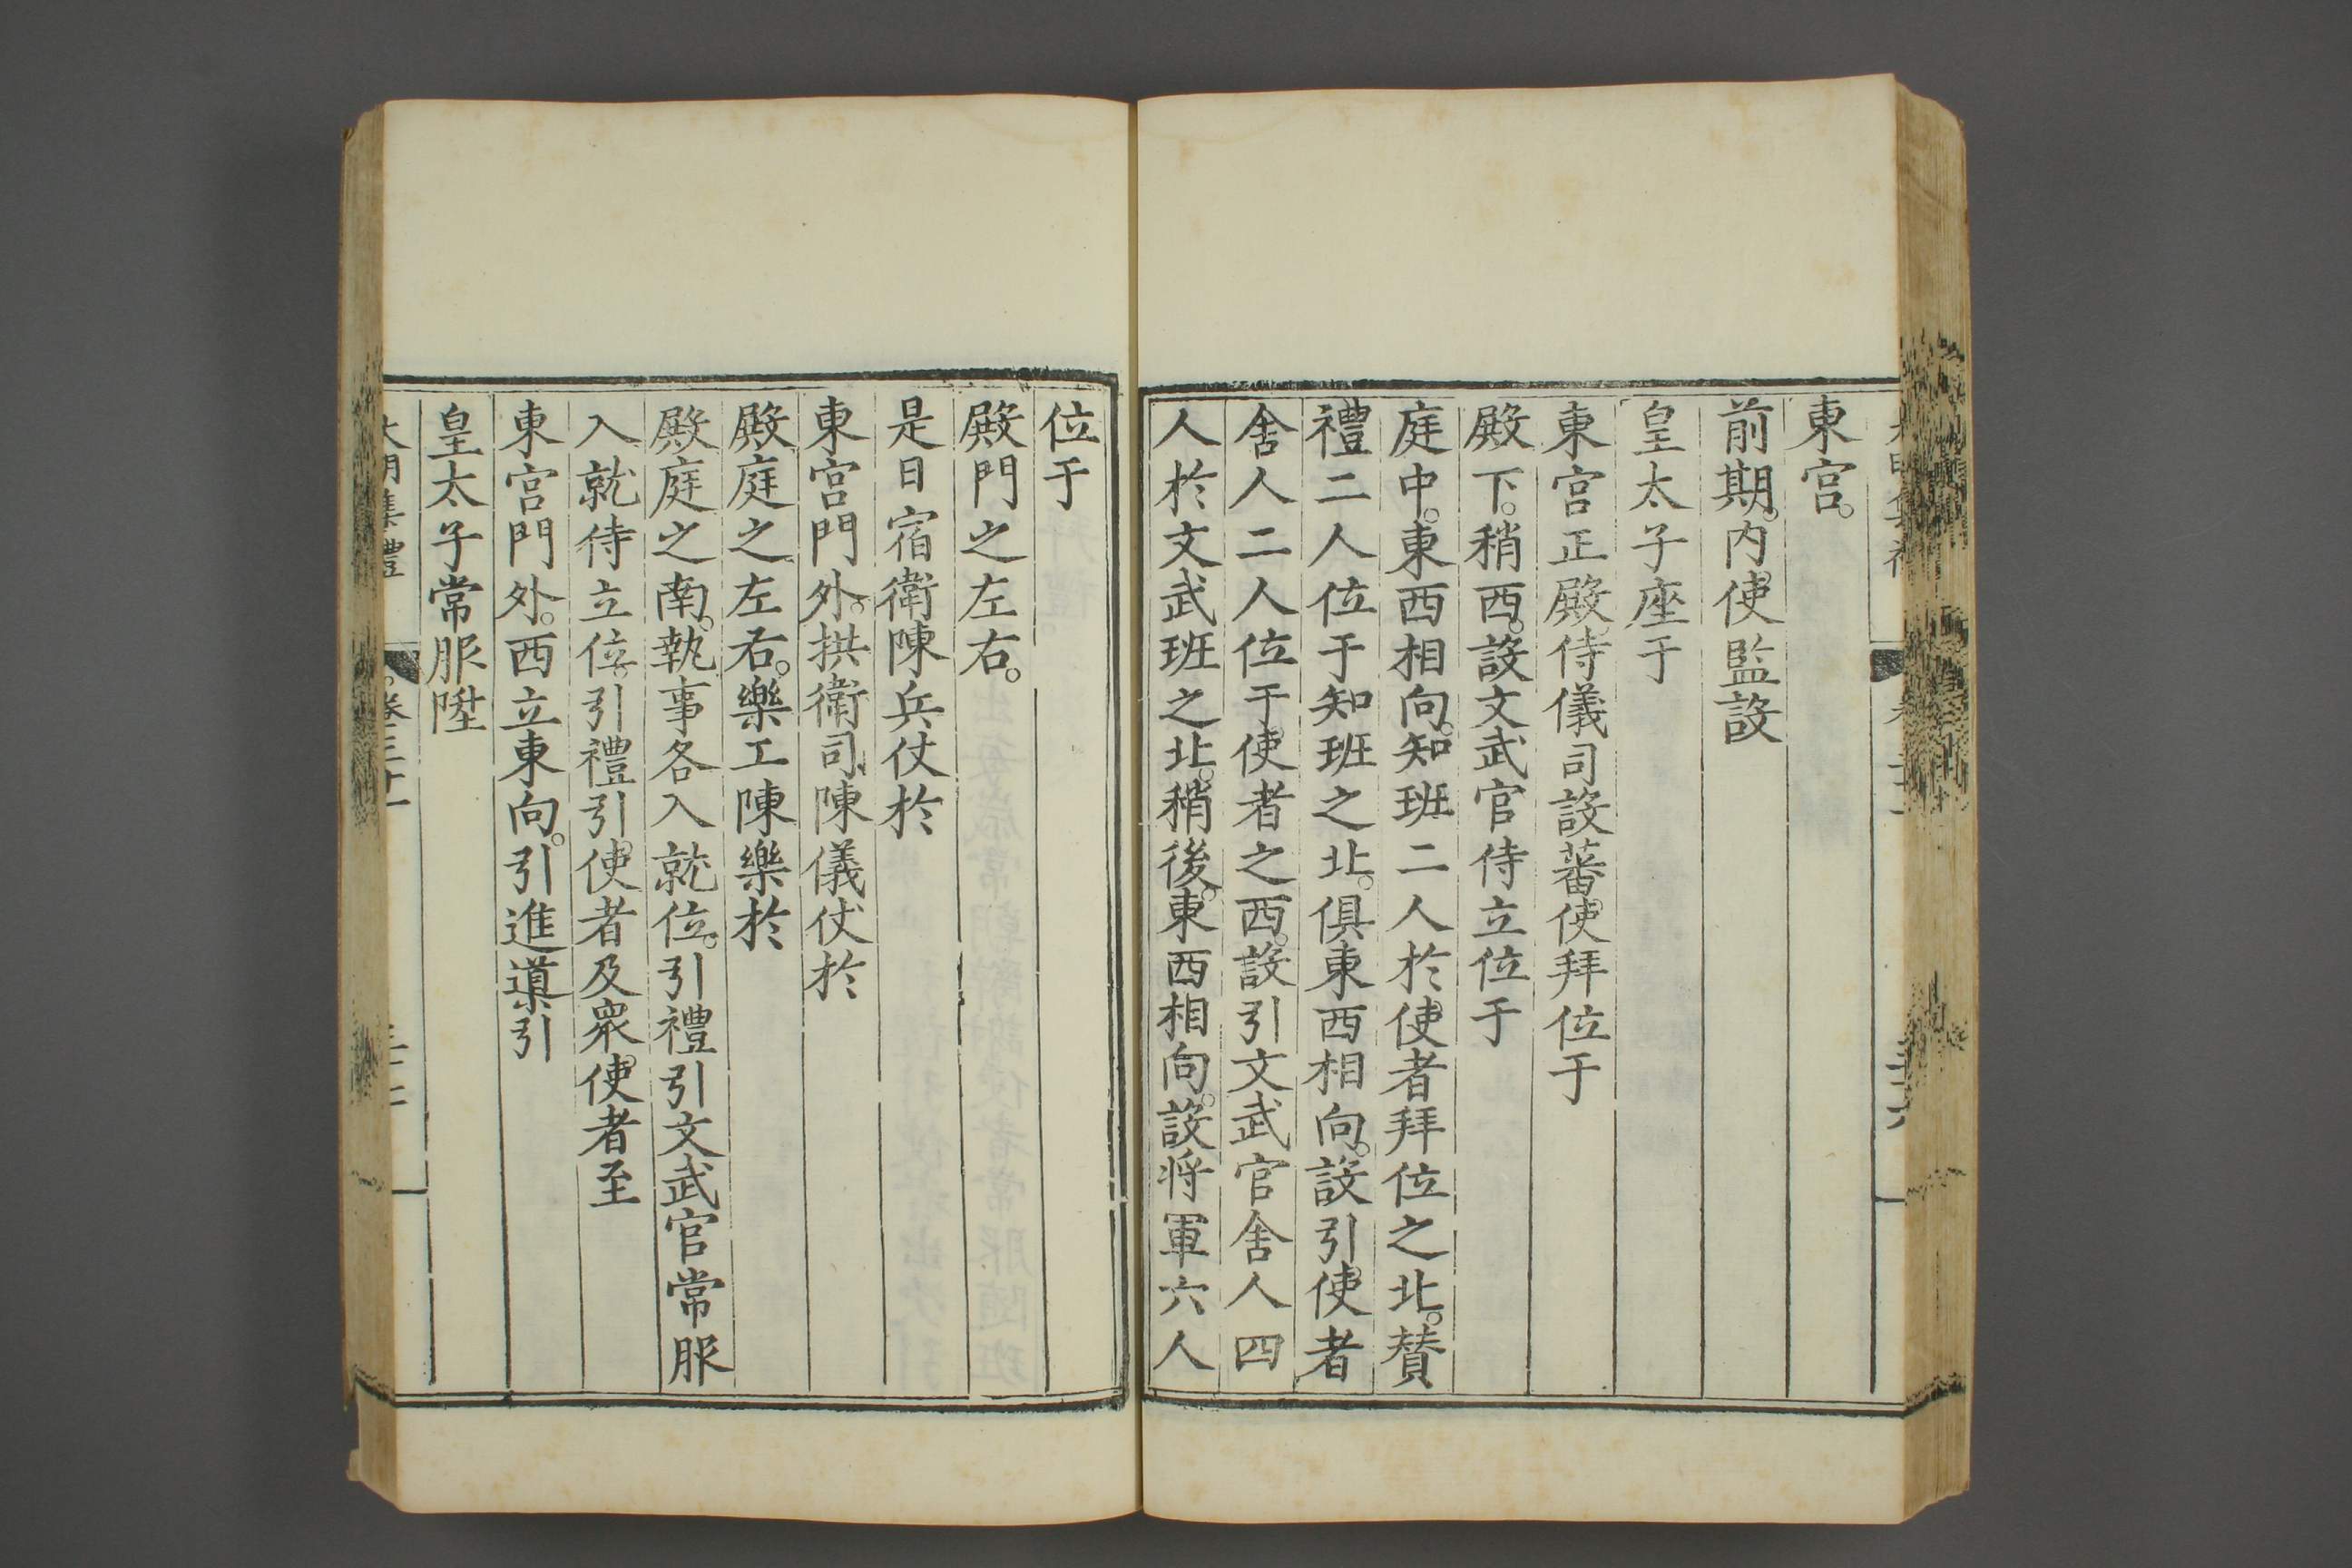 東宮。
前期。内使監設
皇太子座于
東宮正殿。侍儀司設蕃使拜位于
殿下。稍西。設文武官侍立位于
庭中。東西相向。知班二人於使者拜位之北。賛
禮二人位于知班之北。俱東西相向。設引使者
舍人二人位于使者之西。設引文武官舍人四
人於文武班之北。稍後。東西相向。設将軍六人
位于
殿門之左右。
是日宿衛陳兵仗於
東宮門外。拱衛司陳儀仗於
殿庭之左右。樂工陳樂於
殿庭之南。執事各入就位。引禮引文武官常服
入就侍立位。引禮引使者及衆使者至
東宮門外。西立東向。引進導引
皇太子常服陞
大明集禮 卷三十一